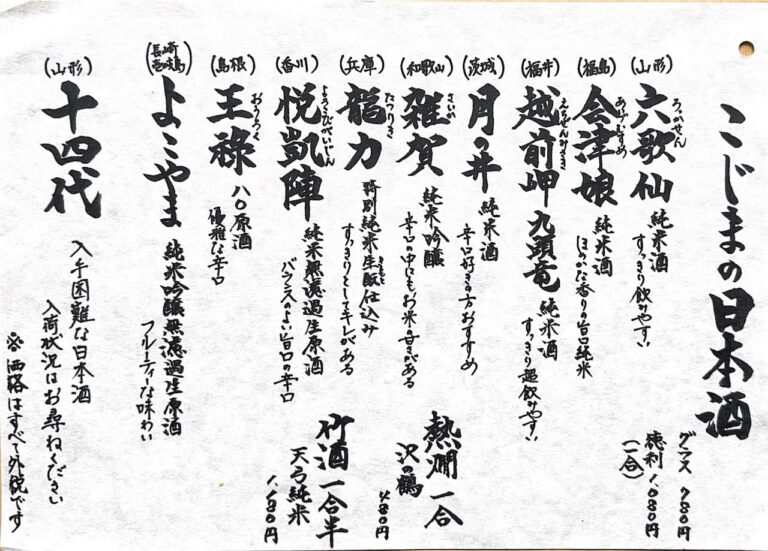 こじまの日本酒
グラス 780円
徳利 1,080円
(一合)
(山形)
六歌仙
ろっかせん
純米酒
すっきり飲みやすい
(福島)
会津娘
あいづむすめ
純米酒
ほのかな香りの旨口純米
(福井)
越前岬 九頭竜 純米酒
えちぜんみさき
すっきり超飲みやすい
(茨城)
月の井
純米酒
辛口好きな方おすすめ
(和歌山)
雑賀
さいか
純米吟醸
辛口の中にもお米の甘さがある
(兵庫)
龍力
たつりき
特別純米生酛仕込み
きもと
すっきりとしてキレがある
(香川)
悦凱陣
よろこびがいじん
純米無濾過生原酒
バランスのよい旨口の辛口
(島根)
王祿
おうろく
八〇原酒
優雅な辛口
(長崎
壱岐島)
よこやま
純米吟醸無濾過生原酒
フルーティーな味わい
(山形)
十四代
入手困難な日本酒
入荷状況はお尋ねください
熱燗 一合
沢の鶴
480円
竹酒 一合半
天弓純米
1,180円
※価格はすべて外税です